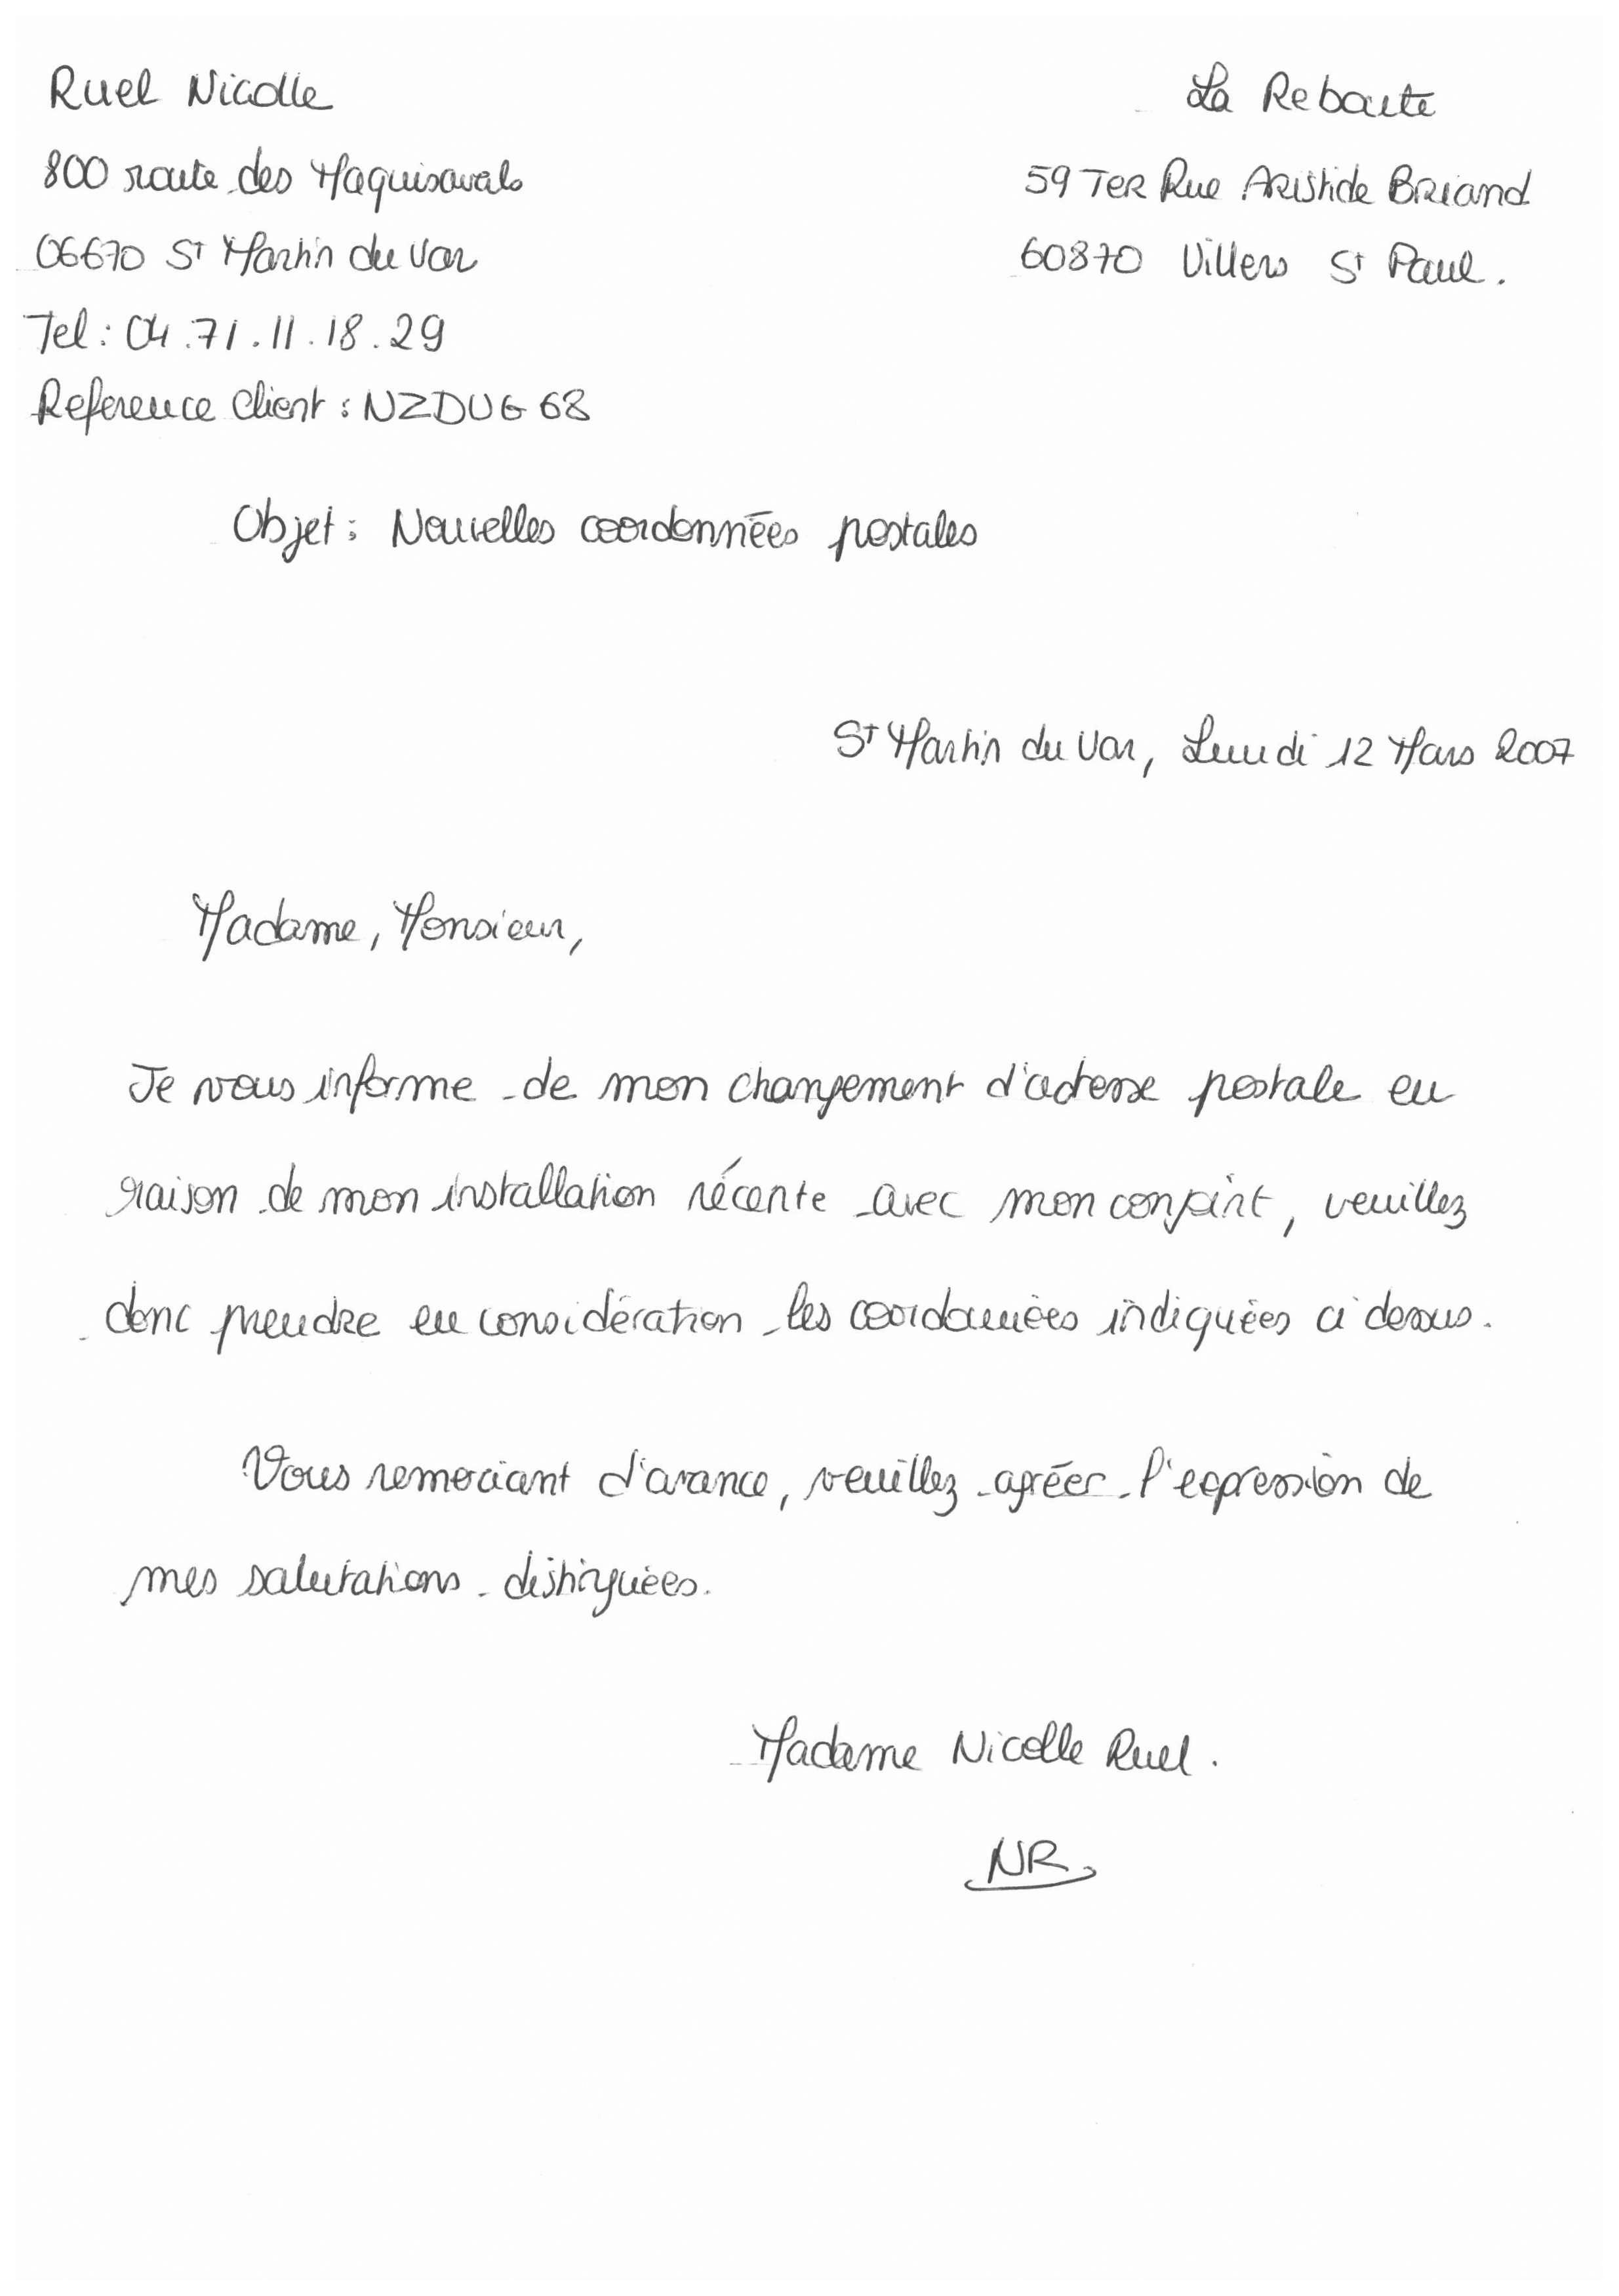 Ruel Nicolle
800 route des Maquisards
06670 St Martin du Var
Tel : 04.71.11.18.29
Reference Client : NZDUG 68
La Reboute
59 Ter Rue Aristide Briand
60870 Villers St Paul.
Objet : Nouvelles coordonnées postales
St Martin du Var, Lundi 12 Mars 2007
Madame, Monsieur,
Je vous informe de mon changement d'adresse postale en
raison de mon installation récente avec mon conjoint, veuillez
donc prendre en considération les coordonnées indiquées ci dessus.
Vous remerciant d'avance, veuillez agréer l'expression de
mes salutations distinguées.
Madame Nicolle Ruel.
NR